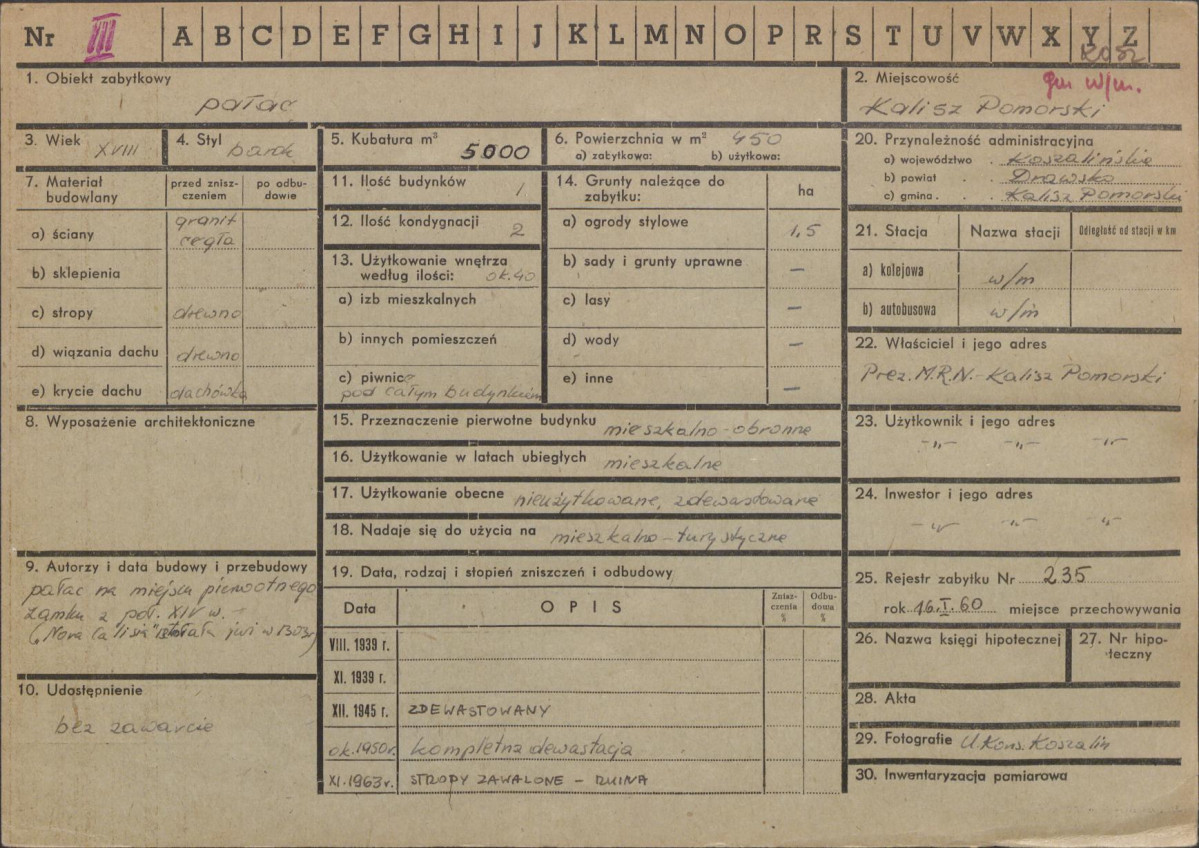 Nr III A B C D E F G H I J K L M N O P R S T U V W X Y Z
KOSZ
1. Obiekt zabytkowy
pałac
2. Miejscowość
gm w/m.
Kalisz Pomorski
3. Wiek XVIII
4. Styl barok
5. Kubatura m³ 5000
6. Powierzchnia w m² 450
a) zabytkowa: b) użytkowa:
7. Materiał budowlany
przed zniszczeniem
po odbudowie
a) ściany granit cegła
b) sklepienia
c) stropy drewno
d) wiązania dachu drewno
e) krycie dachu dachówka
8. Wyposażenie architektoniczne
9. Autorzy i data budowy i przebudowy
pałac na miejscu pierwotnego
zamku z poł. XIV w. –
("Nova Calisia" istniała już w 1303r)
10. Udostępnienie
bez zawarcie
11. Ilość budynków 1
12. Ilość kondygnacji 2
13. Użytkowanie wnętrza
według ilości: ok. 40
a) izb mieszkalnych
b) innych pomieszczeń
c) piwnic
pod całym budynkiem
14. Grunty należące do
zabytku:
ha
a) ogrody stylowe 1,5
b) sady i grunty uprawne –
c) lasy –
d) wody –
e) inne –
15. Przeznaczenie pierwotne budynku mieszkalno-obronne
16. Użytkowanie w latach ubiegłych mieszkalne
17. Użytkowanie obecne nieużytkowane, zdewastowane
18. Nadaje się do użycia na mieszkalno-turystyczne
19. Data, rodzaj i stopień zniszczeń i odbudowy
Data OPIS Zniszczenia % Odbudowa %
VIII. 1939 r.
XI. 1939 r.
XII. 1945 r. ZDEWASTOWANY
ok. 1950r. kompletna dewastacja
XI. 1963r. STROPY ZAWALONE – RUINA
20. Przynależność administracyjna
a) województwo . Koszalińskie
b) powiat . . Drawsko
c) gmina . . . Kalisz Pomorski
21. Stacja Nazwa stacji Odległość od stacji w km
a) kolejowa w/m
b) autobusowa w/m
22. Właściciel i jego adres
Prez. M.R.N. - Kalisz Pomorski
23. Użytkownik i jego adres
-"- -"- -"-
24. Inwestor i jego adres
-"- -"- -"-
25. Rejestr zabytku Nr 235
rok 16.I.60 miejsce przechowywania
26. Nazwa księgi hipotecznej
27. Nr hipoteczny
28. Akta
29. Fotografie U. Kons. Koszalin
30. Inwentaryzacja pamiarowa